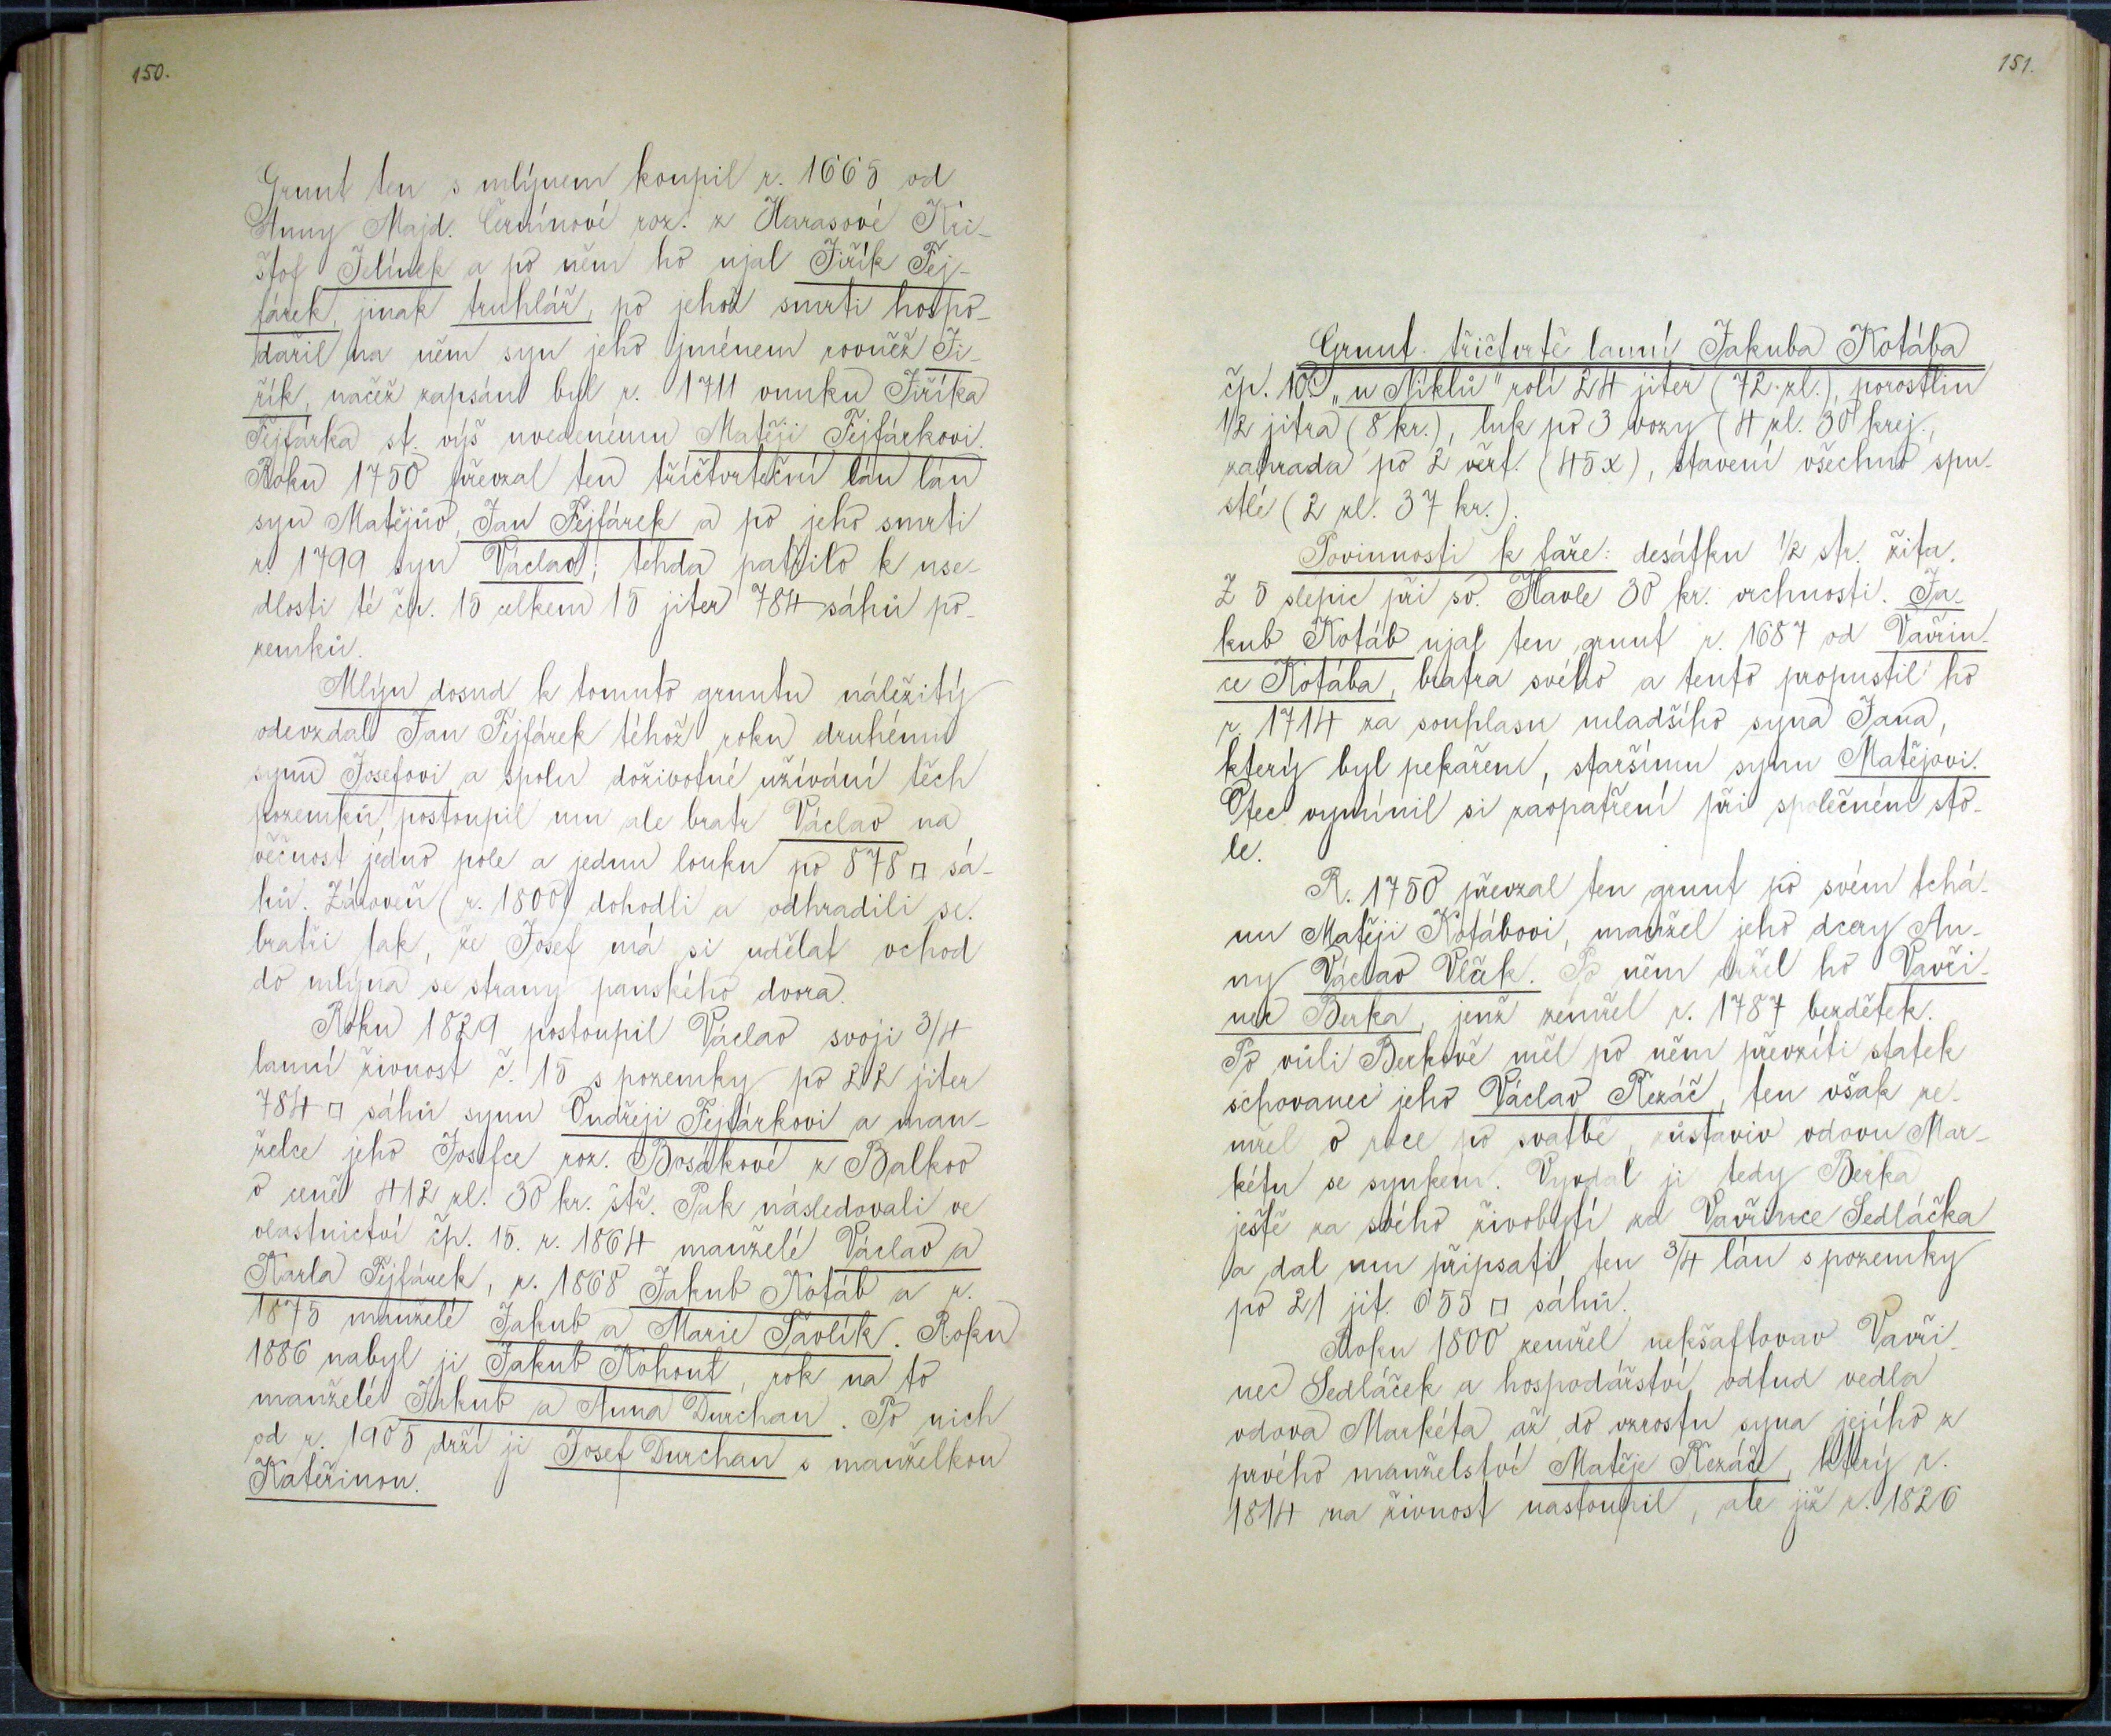 150.
Grunt ten s mlýnem koupil r. 1665 od
Anny Majd. Černínové roz. z Harasové Kri-
štof Jelínek a po něm ho ujal Jiřík Fej-
fárek, jinak truhlář, po jehož smrti hospo-
dařil na něm syn jeho jménem rovněž Ji-
řík, načež zapsán byl r. 1711 vnuku Jiříka
Fejfárka st. výš uvedenému Matěji Fejfárkovi.
Roku 1750 převzal ten tříčtvrteční lán lán
syn Matějův, Jan Fejfárek a po jeho smrti
r. 1799 syn Václav; tehda patřilo k use-
dlosti té čp. 15 celkem 15 jiter 784 sáhů po-
zemků.
Mlýn dosud k tomuto gruntu náležitý
odevzdal Jan Fejfárek téhož roku druhému
synu Josefovi a spolu doživotné užívání těch
pozemků, postoupil mu ale bratr Václav na
věčnost jedno pole a jednu louku po 878 □ sá-
hů. Zároveň (r. 1800) dohodli a odhradili se.
bratři tak, že Josef má si udělat vchod
do mlýna se strany panského dvora.
Roku 1829 postoupil Václav svoji 3/4
lanní živnost č. 15 s pozemky po 22 jiter
784 □ sáhů synu Ondřeji Fejfárkovi a man-
želce jeho Josefce roz. Bosákové z Balkov
v ceně 412 zl. 30 kr. stř. Pak následovali ve
vlastnictví čp. 15. r. 1864 manželé Václav a
Karla Fejfárek, r. 1868 Jakub Kotáb a r.
1875 manželé Jakub a Marie Šavlík. Roku
1886 nabyl ji Jakub Kohout, rok na to
manželé Jakub a Anna Durchan. Po nich
od r. 1905 drží ji Josef Durchan s manželkou
Kateřinou.
151.
Grunt třičtvrtě lanní Jakuba Kotába
čp. 10. „u Niklů" rolí 24 jiter (72 zl.), porostlin
1/2 jitra (8 kr.), luk po 3 vozy (4 zl. 30 krej.,
zahrada po 2 věrt. (45x), stavení všechno spu-
stlé (2 zl. 37 kr.).
Povinnosti k faře: desátku 1/2 str. žita.
Z 5 slepic při sv. Havle 30 kr. vrchnosti. Ja-
kub Kotáb ujal ten grunt r. 1687 od Vavřin-
ce Kotába, bratra svého a tento propustil ho
r. 1714 za souhlasu mladšího syna Jana,
který byl pekařem, staršímu synu Matějovi.
Otec vymínil si zaopatření při společném sto-
le.
R. 1750 převzal ten grunt po svém tchá-
nu Matěji Kotábovi, manžel jeho dcery An-
ny Václav Vlček. Po něm držel ho Vavři-
nec Berka, jenž zemřel r. 1787 bezdětek.
Po vůli Berkově měl po něm převzíti statek
schovanec jeho Václav Řezáč, ten však ze-
mřel v roce po svatbě, zůstaviv vdovu Mar-
kétu se synkem. Vyvdal ji tedy Berka
ještě za svého živobytí za Vavřince Sedláčka
a dal mu připsati ten 3/4 lán s pozemky
po 21 jit. 655 □ sáhů.
Roku 1800 zemřel nekšaftovav Vavři-
nec Sedláček a hospodářství odtud vedla
vdova Markéta až do vzrostu syna jejího z
prvého manželství Matěje Řezáče, který r.
1814 na živnost nastoupil, ale již r. 1826